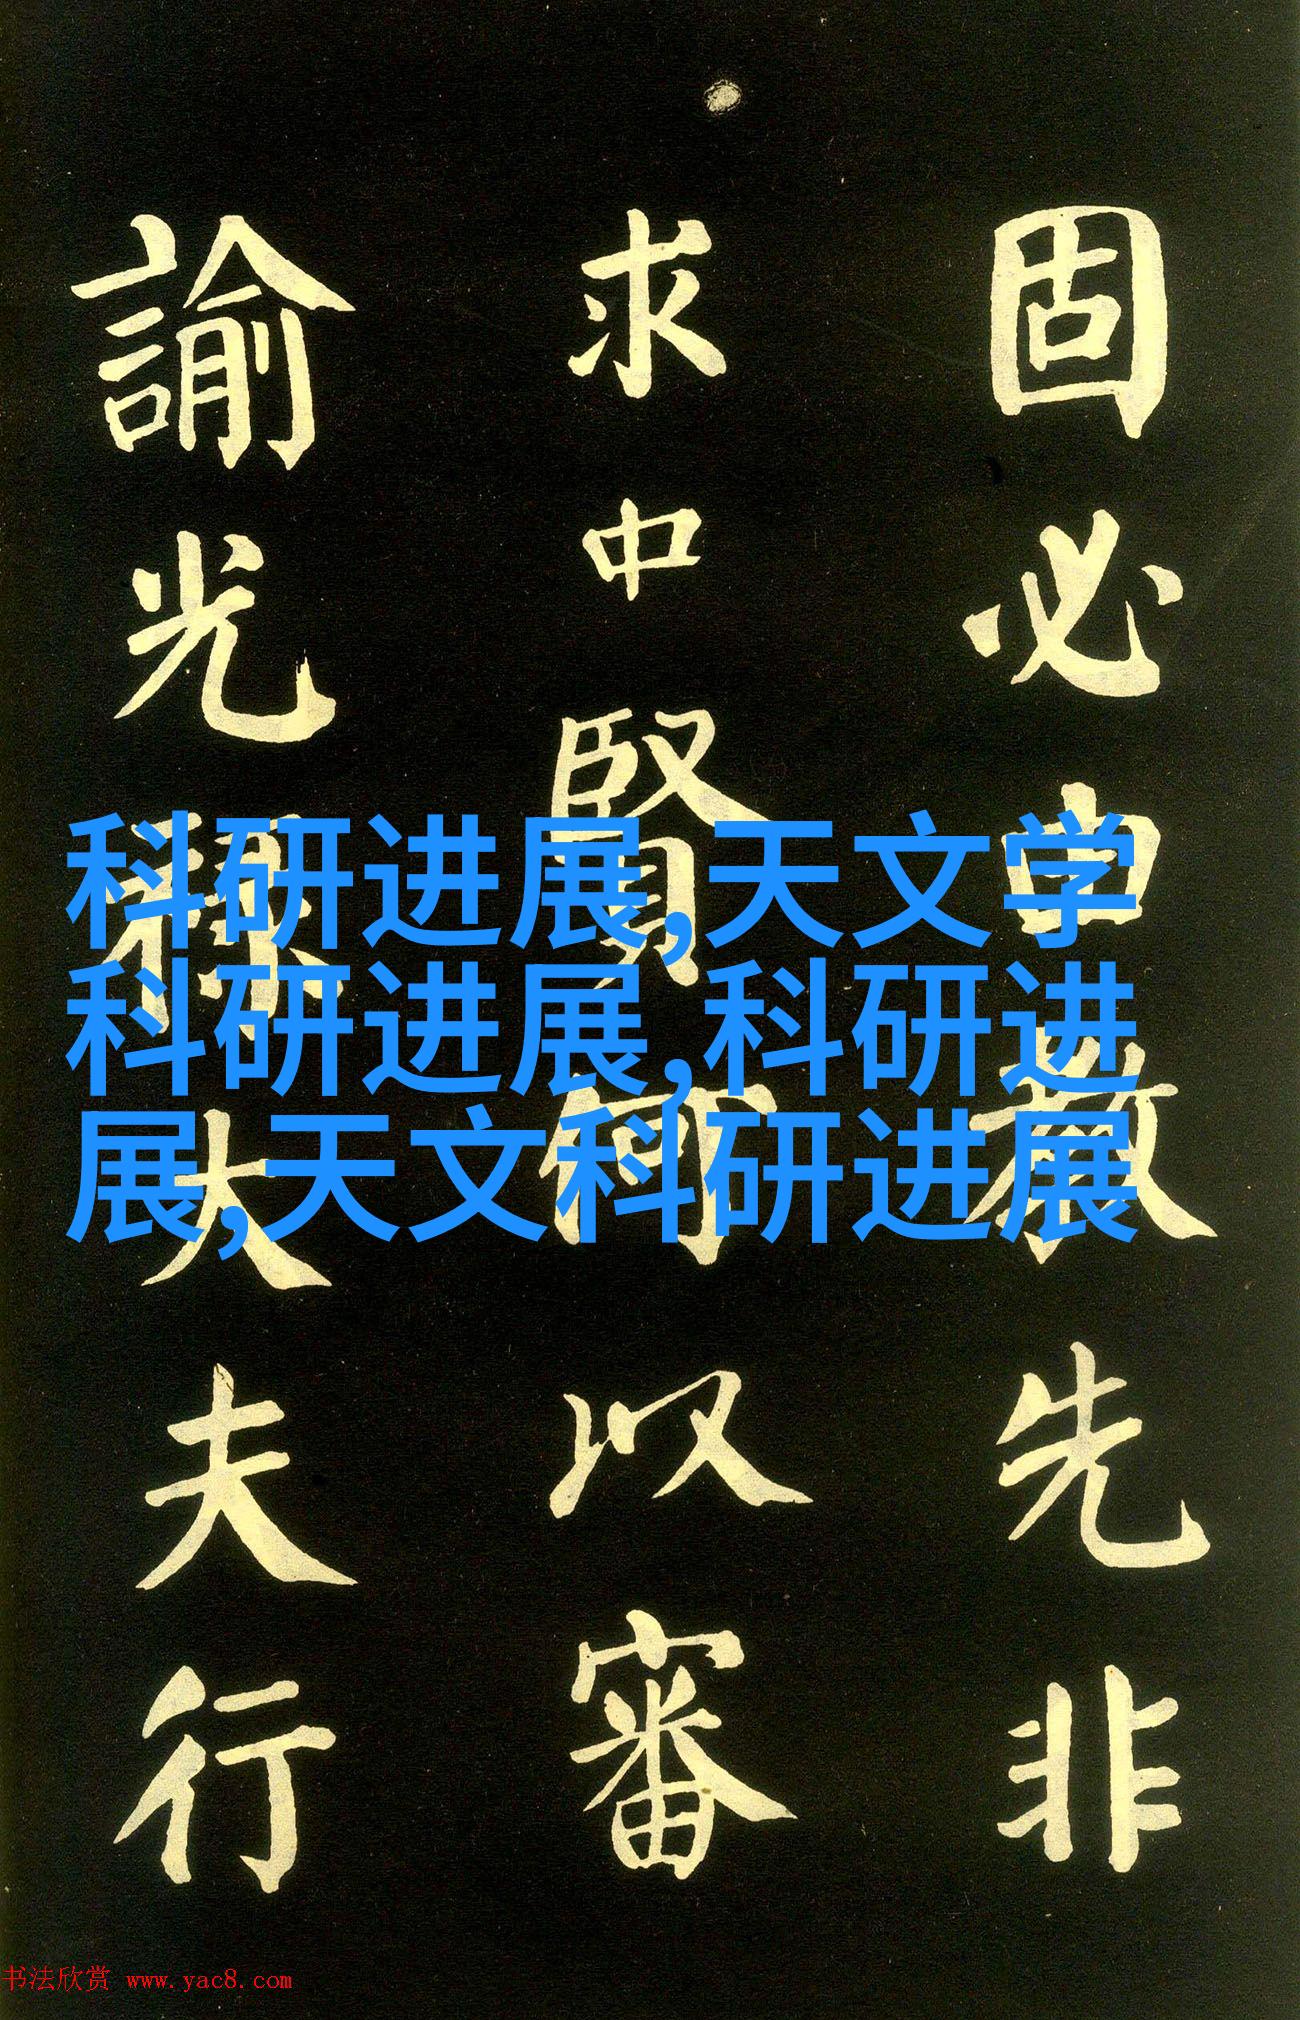 固必由教先非
求中賢何以審
諭光祿大夫行
科研进展,天文学
科研进展,科研进
展,天文科研进展
书法欣赏 www.yac8.com